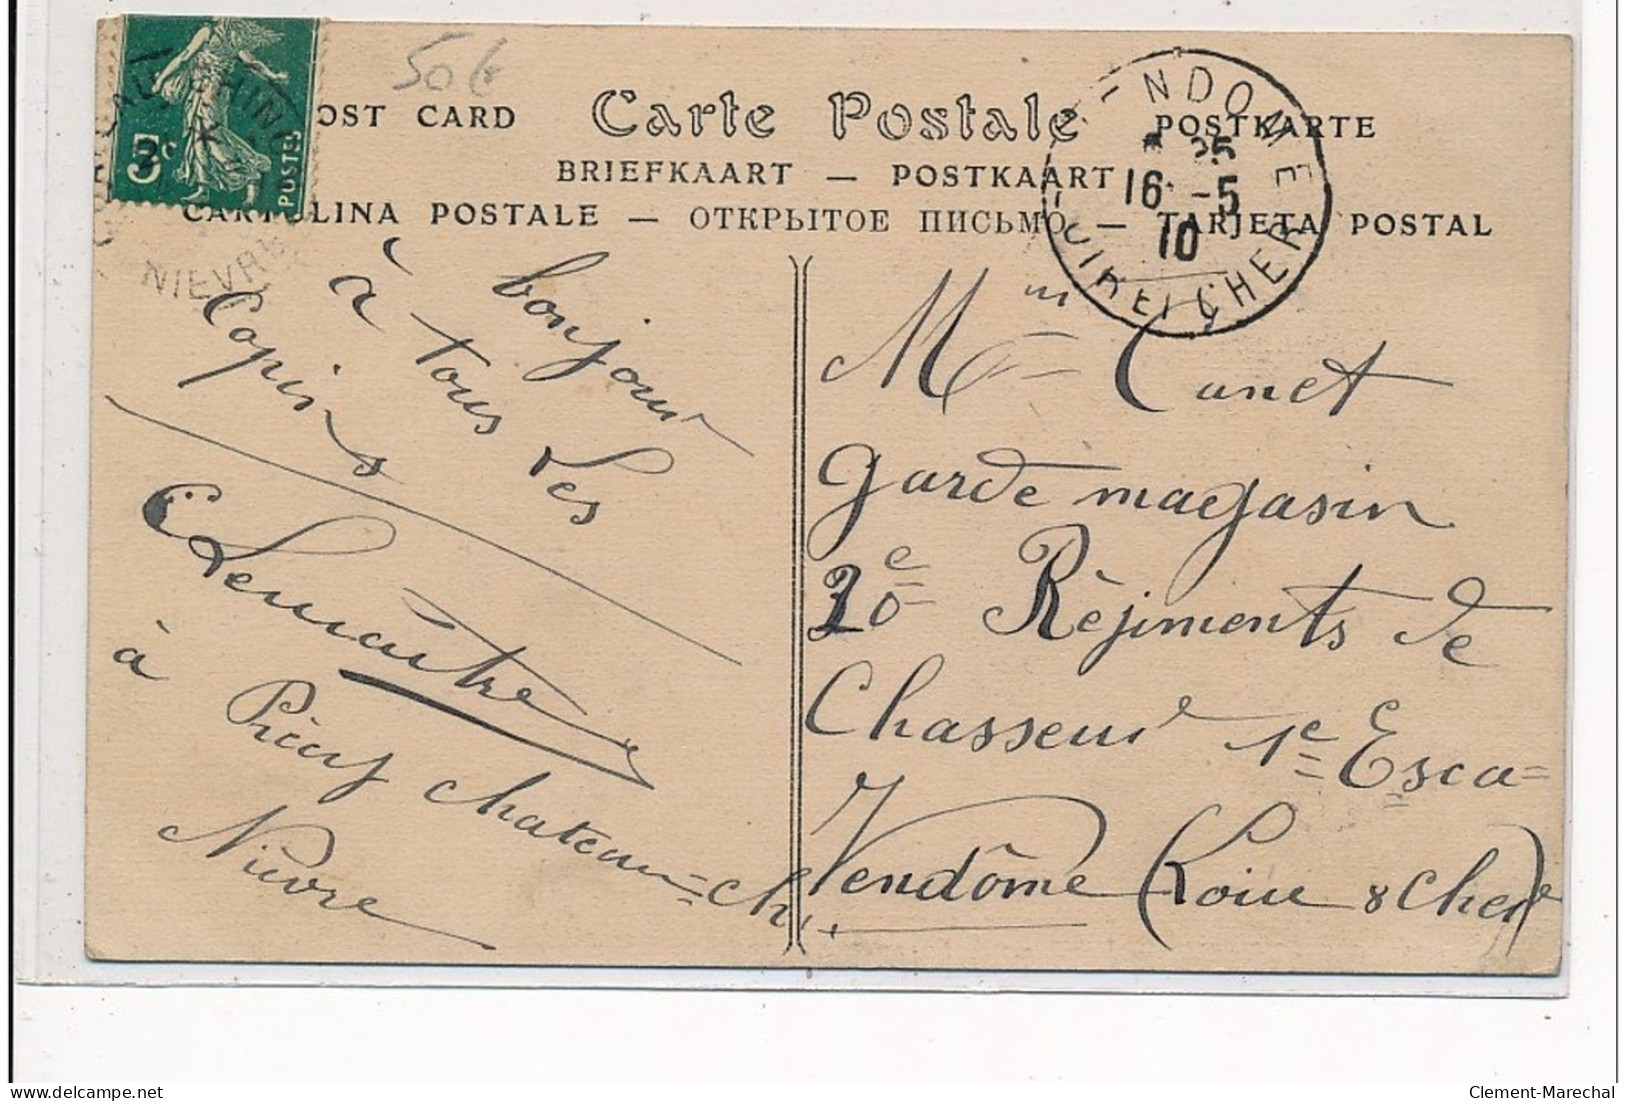 50€
POST CARD Carte Postale POSTKARTE
BRIEFKAART — POSTKAART
CARTOLINA POSTALE — ОТКРЫТОЕ ПИСЬМО — TARJETA POSTAL
5c
POSTES
NIEVRE
VENDOME
25
16 -5
10
LOIR ET CHER
bonjour
à tous les
Copins
CLemaitre
à
chateau=ch.
Nièvre
Canet
Garde magasin
20e Règiments de
Chasseur 1e Esca=
Vendôme (Loir & Cher)
Clement-Marechal